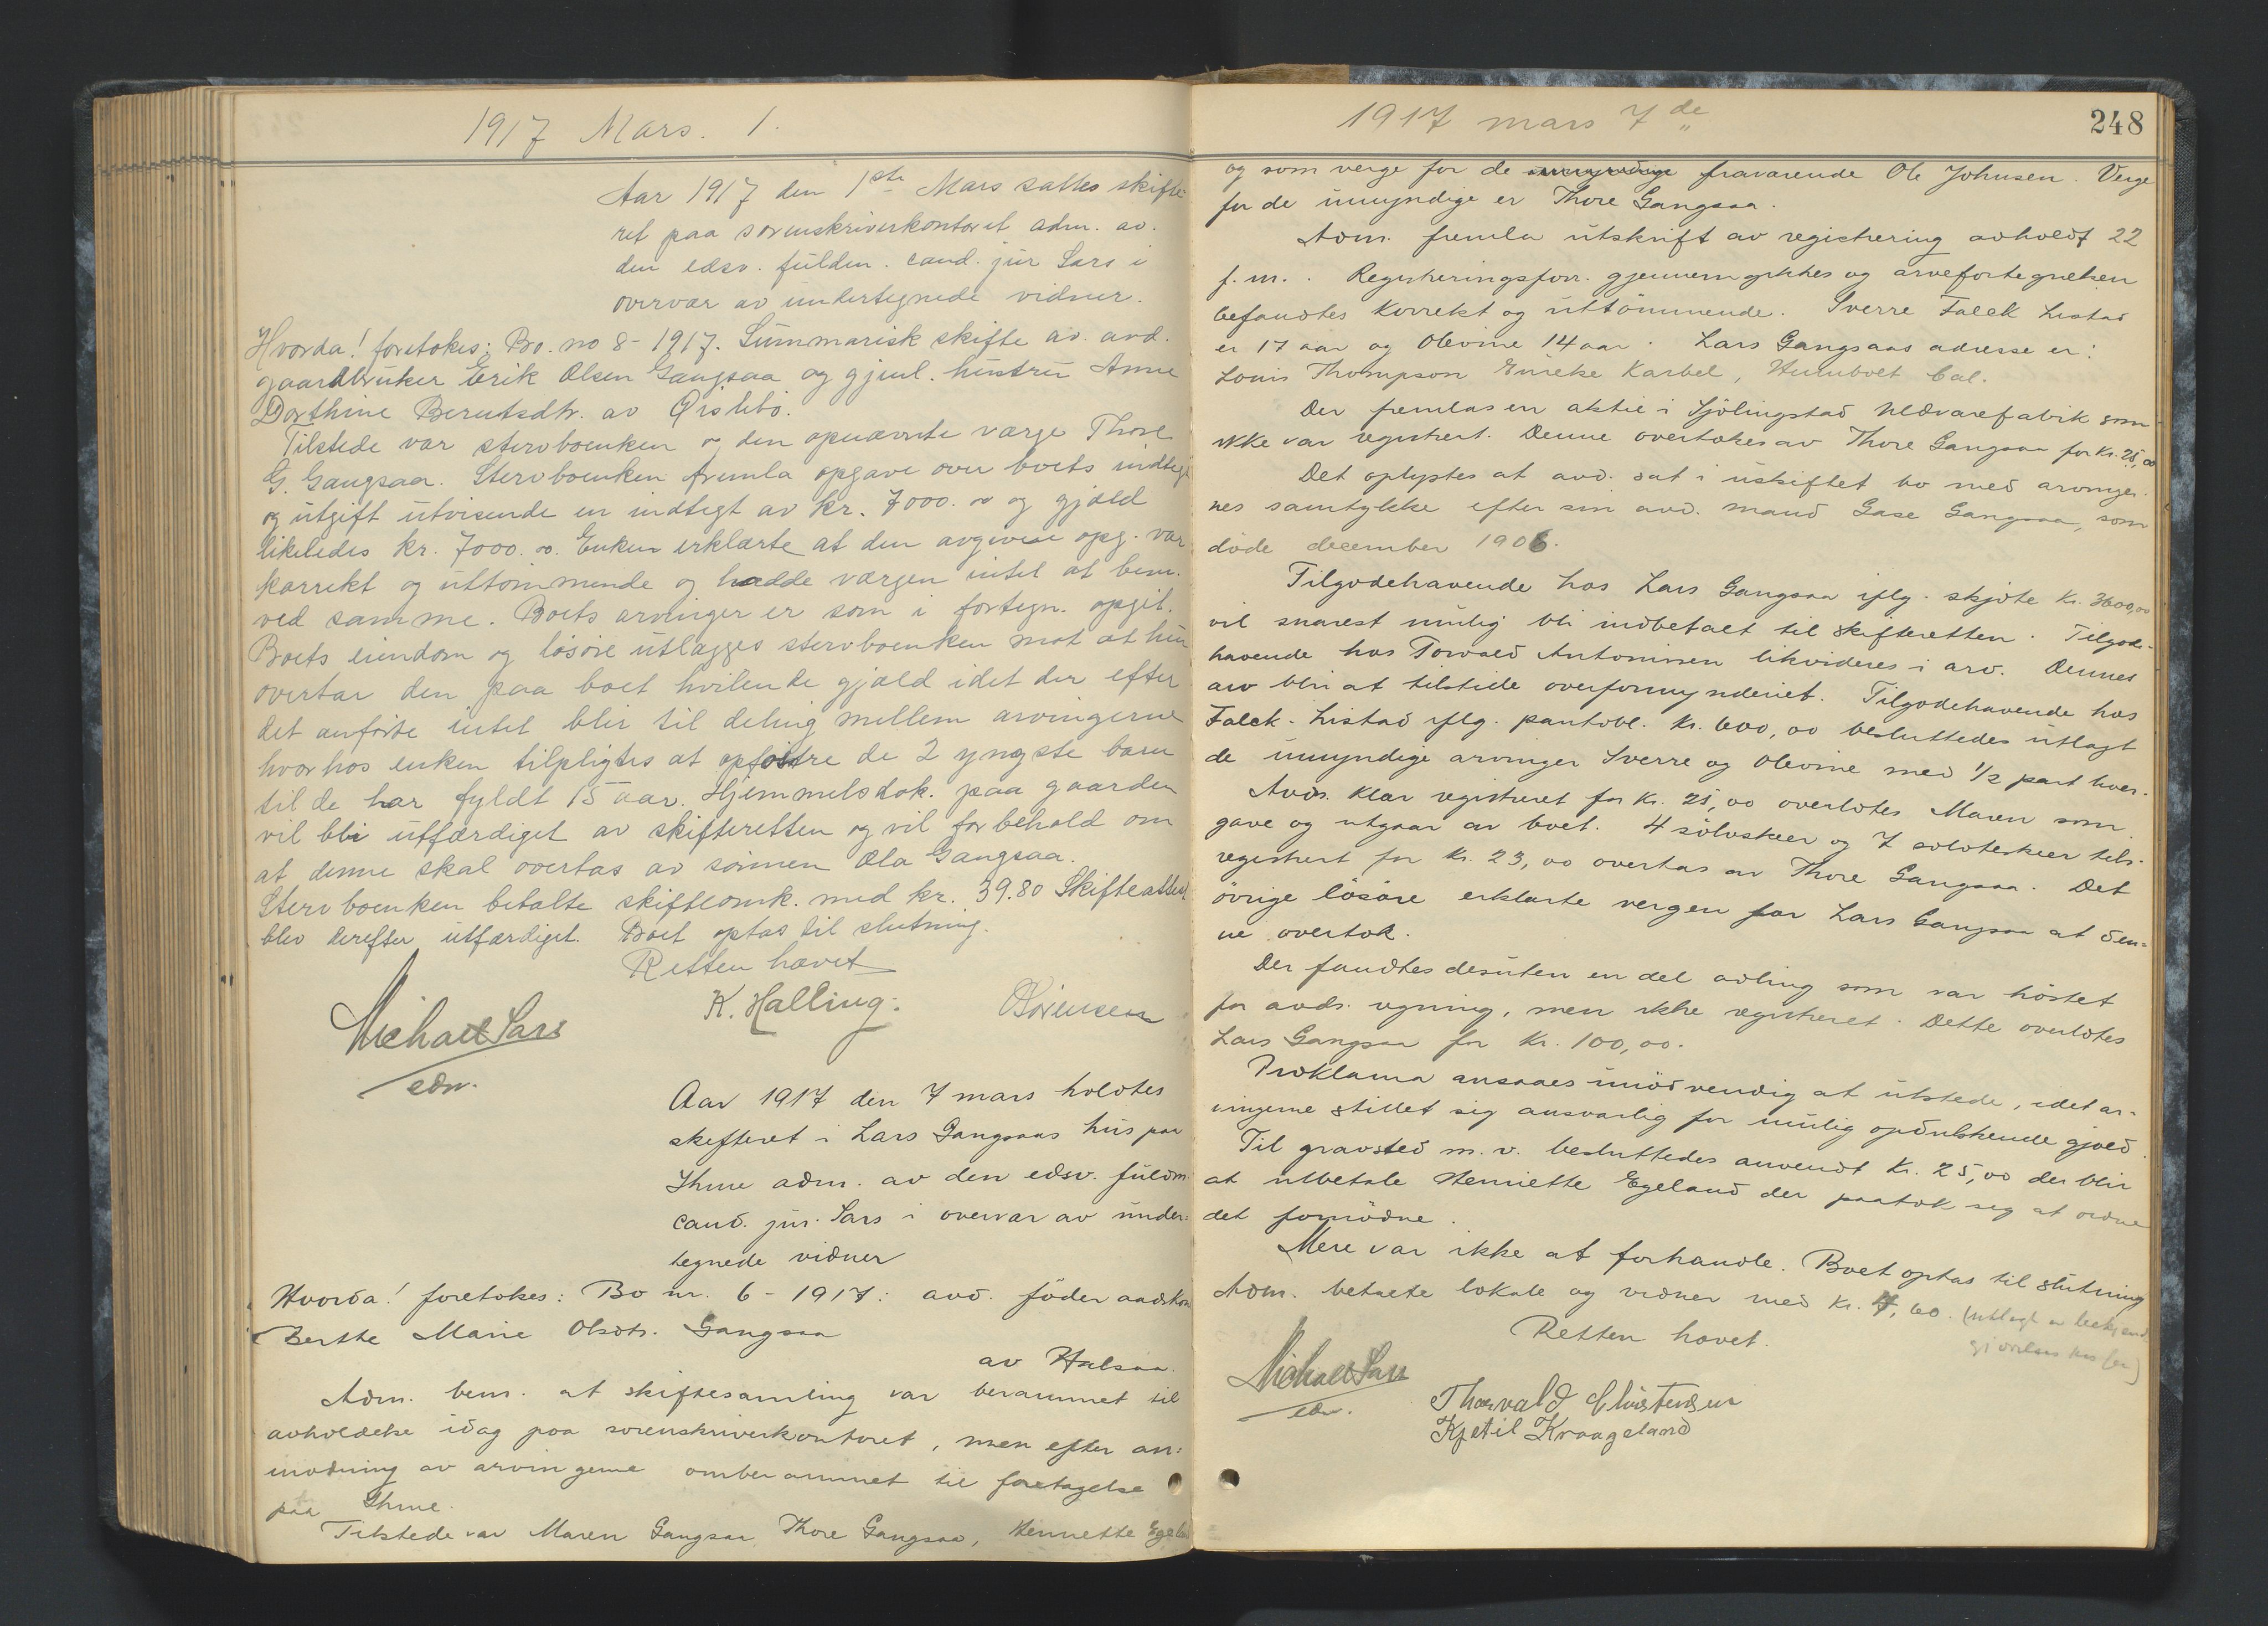 1917 Mars. 1.
Aar 1917 den 1ste Mars sattes skifte-
ret paa sorenskriverkontoret adm. av.
den edsv. fuldm. cand. jur Sars i
overvær av undertegnede vidner.
Hvorda! foretokes: Bo. no 8 - 1917. Summarisk skifte av avd.
gaardbruker Erik Olsen Gangsaa og gjenl. hustru Anne
Dorthine Berntsdtr. av Øislebö.
Tilstede var stervboenken og den opnævnte værge Thore
G. Gangsaa. Stervboenken fremla opgave over boets indtegt
og utgift utvisende en indtegt av kr. 7000.00 og gjæld
likeledes kr. 7000.00. Enken erklærte at den avgivne opg. var
korrekt og uttömmende og hadde værgen intet at bem.
ved samme. Boets arvinger er som i fortegn. opgit.
Boets eiendom og lösöre utlægges stervboenken mot at hun
overtar den paa boet hvilende gjæld idet der efter
det anförte intet blir til deling mellem arvingerne
hvorhos enken tilpligtes at opfostre de 2 yngste barn
til de har fyldt 15 aar. Hjemmelsdok. paa gaarden
vil bli utfærdiget av skifteretten og vil forbehold om
at denne skal overtas av sönnen Ola Gangsaa.
Stervboenken betalte skifteomk. med kr. 39.80 Skifteattest
blev derefter utfærdiget. Boet optas til slutning.
Retten hævet
Michael Sars K. Halling. OSörensen
edsv.
Aar 1917 den 7 mars holdtes
skifteret i Lars Gangsaas hus paa
Ihme adm. av den edsv. fuldm.
cand. jur. Sars i overvær av under-
tegnede vidner
Hvorda! foretokes: Bo nr. 6 - 1917: avd. föderaadskone
Berthe Marie Olsdtr. Gangsaa
av Halsaa.
Adm. bem. at skiftesamling var berammet til
avholdelse idag paa sorenskriverkontoret, men efter an-
modning av arvingerne omberammet til foretagelse
paa Ihme.
Tilstede var Maren Gangsaa Thore Gangsaa, Henriette Egeland
1917 mars 7de
248
og som verge for de umyndige fraværende Ole Johnsen. Verge
for de umyndige er Thore Gangsaa.
Adm. fremla utskrift av registrering avholdt 22
f.m. Registreringsforr. gjennemgikkes og arvefortegnelsen
befandtes korrekt og uttömmende. Sverre Falck Listad
er 17 aar og Olevine 14 aar. Lars Gangsaas adresse er:
Louis Thompson Eureke Karbel, Humbolt Cal.
Der fremlaes en aktie i Sjölingstad Uldvarefabrik som
ikke var registrert. Denne overtokes av Thore Gangsaa for Kr. 25,00
Det oplystes at avd. sat i uskiftet bo med arvinger-
nes samtykke efter sin avd. mand Gase Gangsaa, som
döde december 1906.
Tilgodehavende hos Lars Gangsaa iflg. skjöte Kr. 3600,00
vil snarest mulig bli indbetalt til skifteretten. Tilgode-
havende hos Torvald Antonissen likvideres i arv. Dennes
arv blir at tilstide overformynderiet. Tilgodehavende hos
Falck-Listad iflg. pantobl. Kr. 600,00 besluttedes utlagt
de umyndige arvinger Sverre og Olevine med 1/2 part hver.
Avds. klær registreret for Kr. 25,00 overlotes Maren som
gave og utgaar av boet. 4 sölvskeer og 7 sölvteskeer tils.
registrert for Kr. 23,00 overtas av Thore Gangsaa. Det
övrige lösöre erklærte vergen for Lars Gangsaa at den-
ne overtok.
Der fandtes desuten en del avling som var höstet
for avds. regning, men ikke registreret. Dette overlotes
Lars Gangsaa for Kr. 100,00.
Proklama ansaaes unödvendig at utstede, idet ar-
vingerne stillet sig ansvarlig for mulig opdukkende gjæld.
Til gravsted m.v. besluttedes anvendt Kr. 25,00 der blir
at utbetale Henriette Egeland der paatok sig at ordne
det fornödne.
Mere var ikke at forhandle. Boet optas til slutning
Adm. betalte lokale og vidner med Kr. 7,60. (utlagt av bekjendt
gjörelses kassen)
Retten hævet.
Michael Sars
edsv.
Thorvald Christensen
Kjetil Kraageland